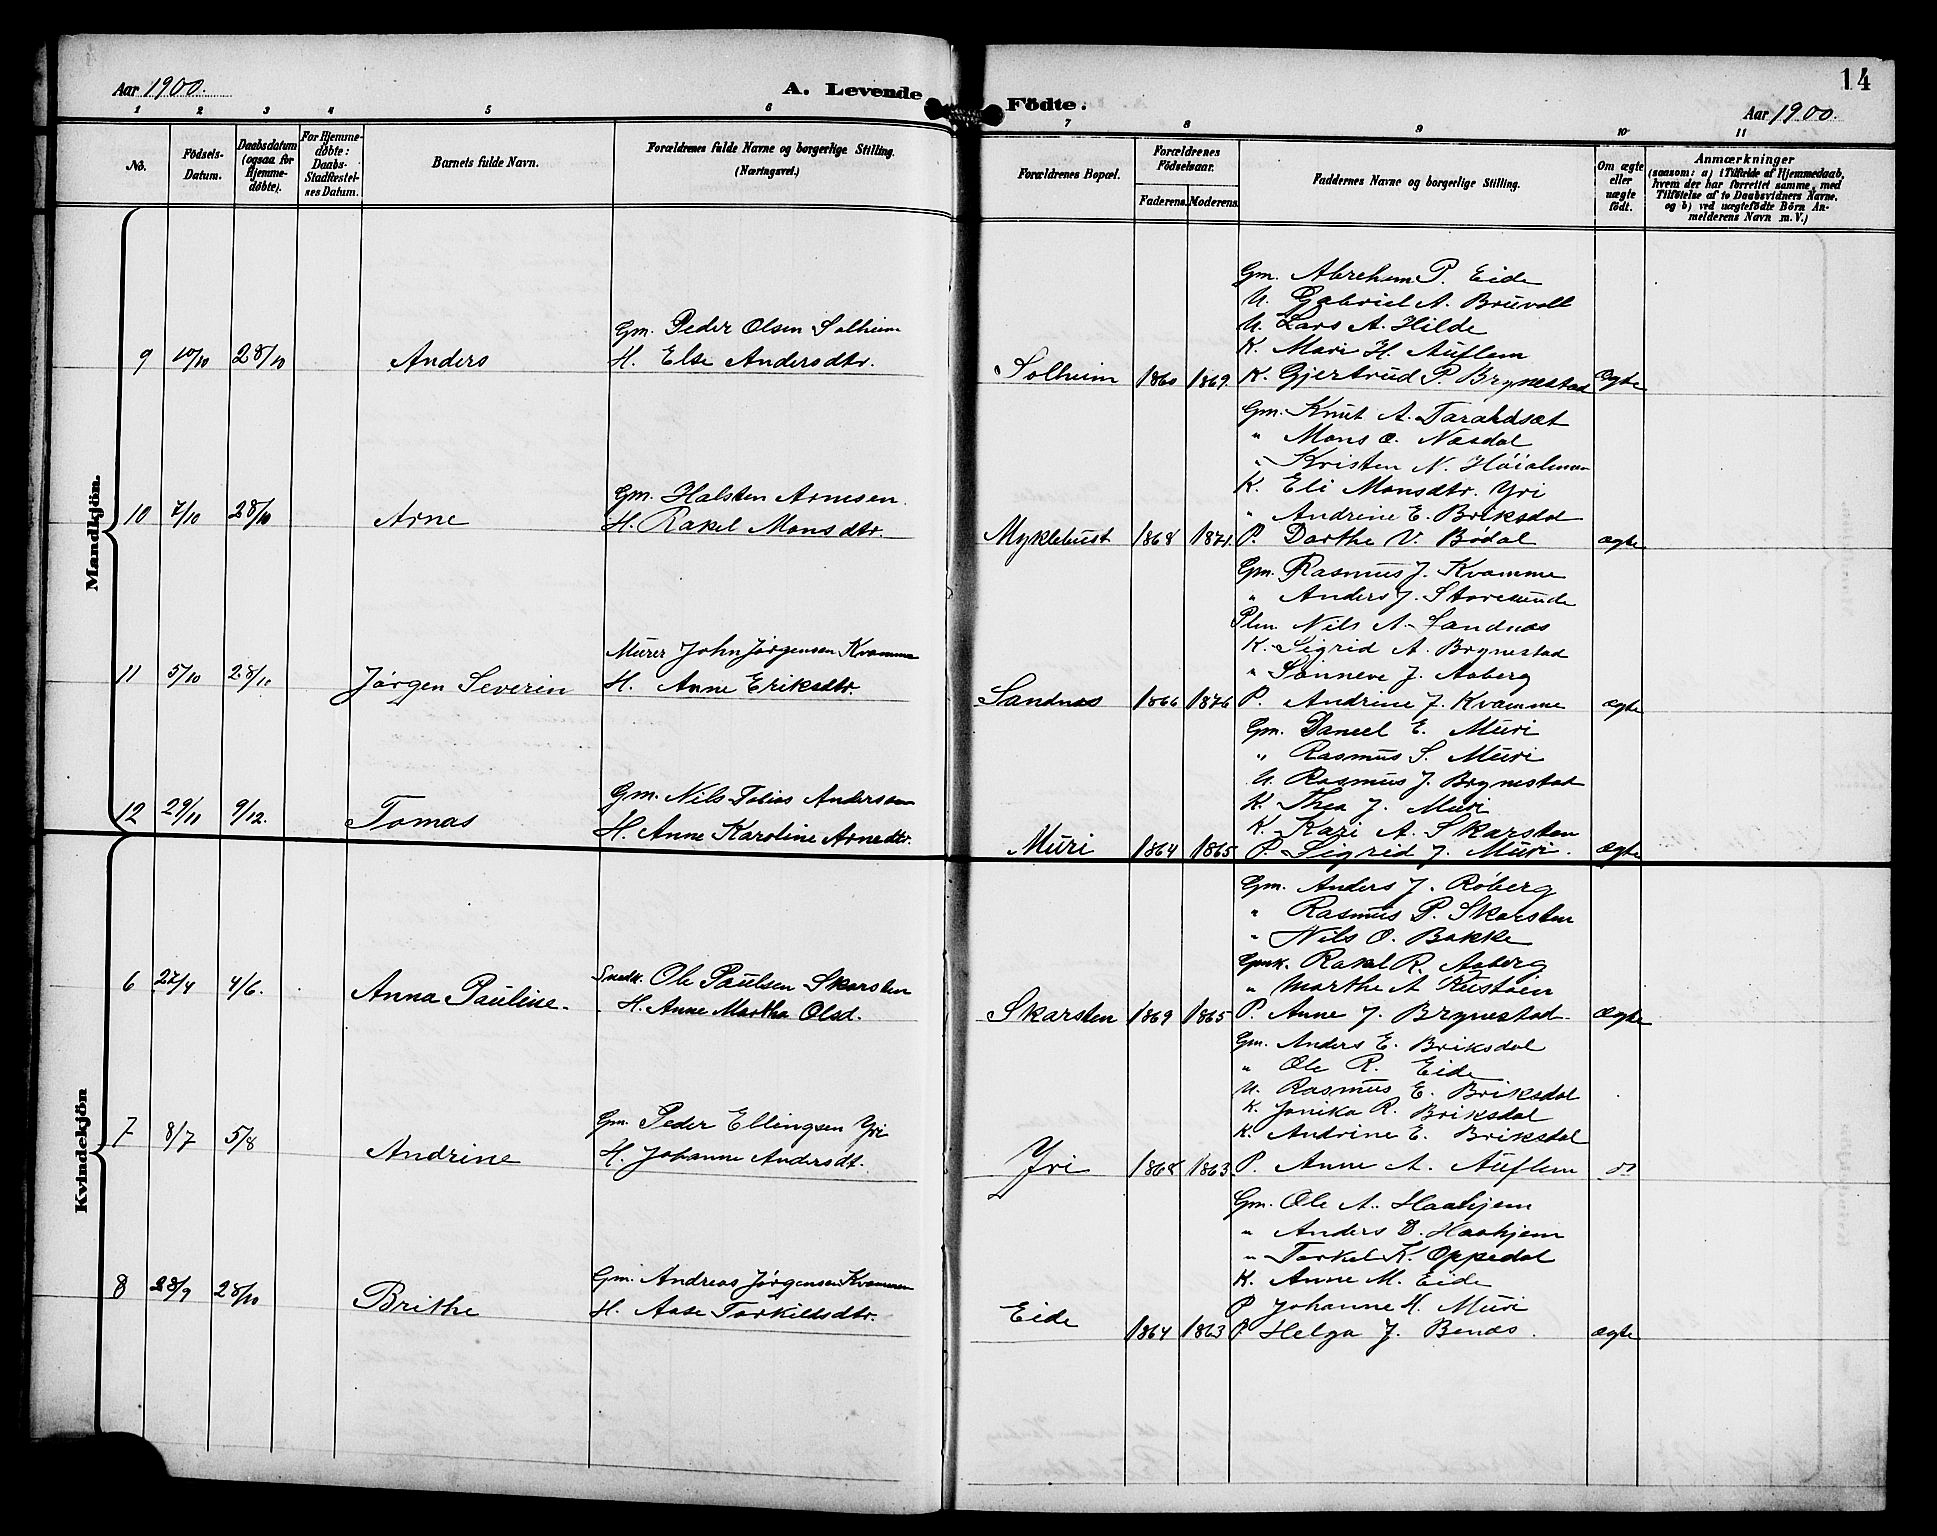 Aar 1900.
A. Levende
1 2 3 4 5 6
No.
Födsels-Datum.
Daabsdatum (ogsaa for Hjemme-døbte).
For Hjemme-døbte: Daabs-Stadfæstel-ses Datum.
Barnets fulde Navn.
Forældrenes fulde Navne og borgerlige Stilling.
(Næringsvei.)
Mandkjön.
Gm. Peder Olsen Solheim
9 10/10 28/10 Anders H. Else Andersdtr.
Gm. Halsten Arnesen.
10 7/10 28/10 Arne H. Rakel Monsdtr.
Murer John Jørgensen Kvamme
11 5/10 28/11 Jørgen Severin H. Anne Eriksdtr.
Gm. Nils Tobias Andersen
12 29/11 9/12. Tomas H. Anne Karoline Arnedtr.
Kvindekjön
Snedk. Ole Paulsen Skarsten
6 27/4 4/6. Anna Pauline. H. Anne Martha Olsd.
Gm. Peder Ellingsen Yri
7 8/7 5/8 Andrine H. Johanne Andersdt.
Gm. Andreas Jørgensen Kvammen
8 28/9 28/10 Brithe H. Aase Torkildsdtr.
14
Födte.
Aar 1900.
7 8 9 10 11
Forældrenes Bopæl.
Forældrenes Födselsaar.
Faderens. Moderens.
Faddernes Navne og borgerlige Stilling.
Om ægte eller uægte födt.
Anmærkninger
(saasom: a) i Tilfælde af Hjemmedaab,
hvem der har forrettet samme, med
Tilføielse af to Daabsvidners Navne,
og b) ved uægtefödte Börn An-
melderens Navn m. V.)
Gm. Abreham P. Eide
U. Gabriel A. Bruvoll
U. Lars A. Hilde
K. Mari H. Auflem
Solheim 1860 1869. K. Gjertrud P. Brynestad Ægte
Gm. Knut A. Taraldset
" Mons O. Nesdal
" Kristen N.
K. Eli Monsdtr. Yri
" Andrine E. Briksdal
Myklebust 1868 1871. P. Dorthe V. Bødal ægte
Gm. Rasmus J. Kvamme
" Anders J. Storesunde
Plm. Nils A. Sandnæs
K. Sigrid A. Brynestad
" Sønneve J. Aaberg
Sandnæs 1866 1876 P. Andrine J. Kvamme ægte
Gm. Daneel E. Muri
" Rasmus S. Muri
U. Rasmus J. Brynestad
K. Thea J. Muri
K. Kari A. Skarsten
Muri 1864 1865 P. Sigrid J. Muri. Ægte
Gm. Anders J. Røberg
" Rasmus P. Skarsten
" Nils O. Bakke
Gmk. Rakel R. Aaberg
" Marthe A.
Skarsten 1869 1865 P. Anne J. Brynestad. Ægte
Gm. Anders E. Briksdal
" Ole R. Eide
U. Rasmus E. Briksdal
K. Jonika R. Briksdal
K. Andrine E. Briksdal
Yri 1868 1863 P. Anne A. Auflem
Gm. Ole A. Haahjem
" Anders D. Haahjem
" Torkel K. Oppedal
K. Anne M. Eide
P Johanne H. Muri
Eide 1864 1863 P. Helga J. Benæs. ægte